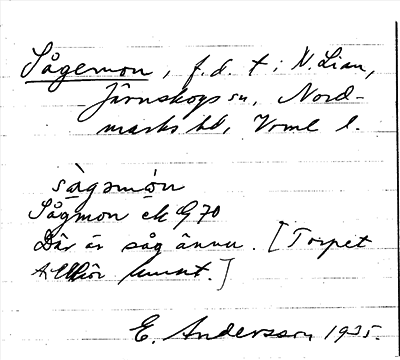 Sågemon, f.d. t; N. Lian,
Järnskogs sn, Nord-
marks hd, Vrml l.
sàgəmón
Sågmon ek G 70
Där är såg ännu. [Torpet
okänt.]
E. Andersson 1935.